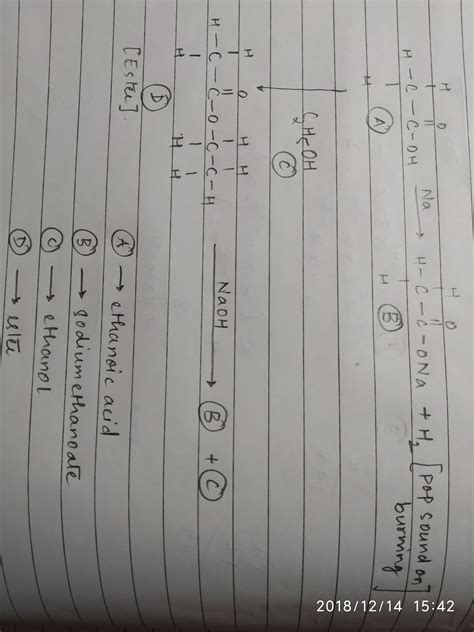 H O
H-C-C-OH Na → H-C-C-ONa + H2 [Pop sound on burning]
H H
A B
C2H5OH
C
H O H H
H-C-C-O-C-C-H NaOH → B + C
H H H
D
[Ester].
A → ethanoic acid
B → sodium ethanoate
C → ethanol
D →
2018/12/14 15:42